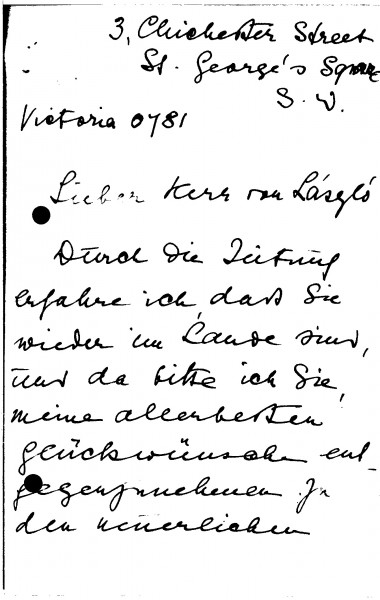 3, Chichester Street
St. George's Square
S. W.
Victoria 0781
Lieber Herr von László
Durch die Zeitung
erfahre ich, dass Sie
wieder im Lande sind,
und da bitte ich Sie,
meine allerbesten
Glückwünsche ent-
gegenzunehmen. Zu
den neuerlichen